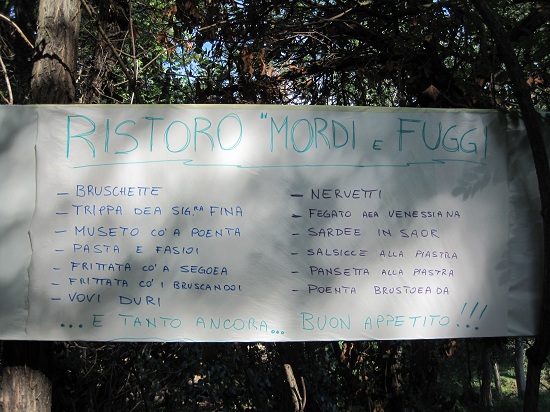 RISTORO "MORDI E FUGGI
- BRUSCHETTE
- TRIPPA DEA SIG.RA FINA
- MUSETO CO'A POENTA
- PASTA E FASIOI
- FRITTATA CO'A SEGOEA
- FRITTATA CO' I BRUSCANDOI
- VOVI DURI
- NERVETTI
- FEGATO AEA VENESSIANA
- SARDEE IN SAOR
- SALSICCE ALLA PIASTRA
- PANSETTA ALLA PIASTRA
- POENTA BRUSTOEADA
... E TANTO ANCORA... BUON APPETITO!!!